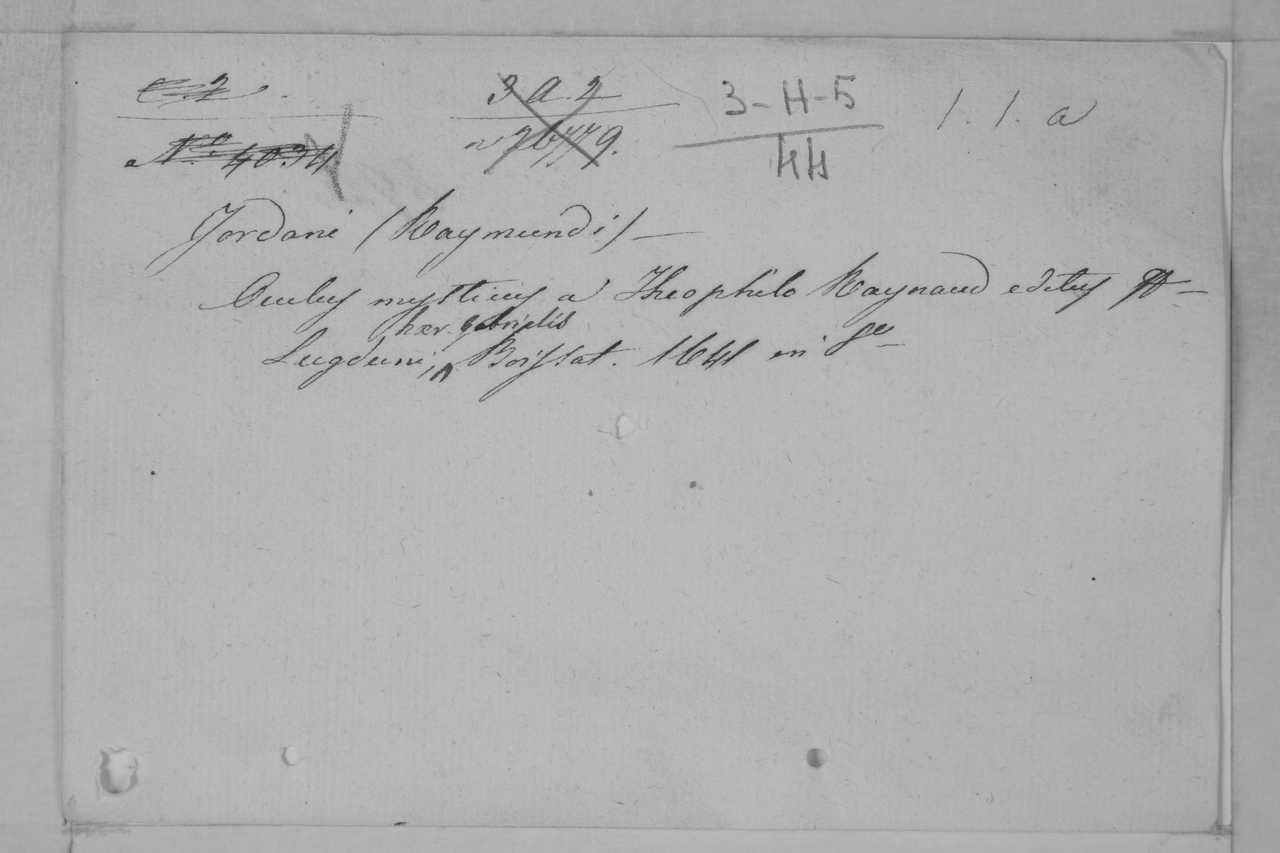 C. 2. 3 A. 2 3-H-5 1. 1. a
No. 4034 n 26779. 44
Jordani (Raymundi) —
Oculus mysticus a Theophilo Raynaud editus —
hær. gabrielis
Lugduni, Boissat. 1641 in 8º